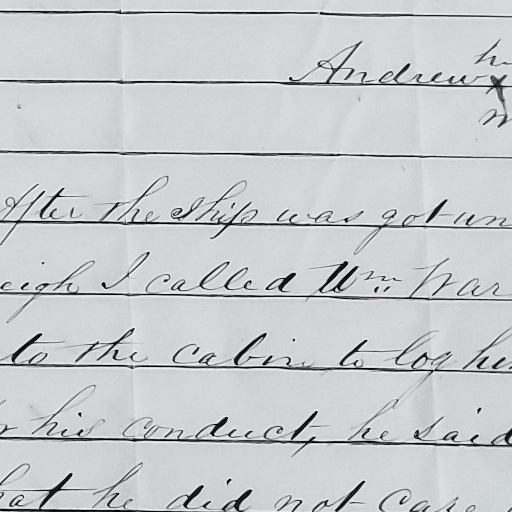 Andrew x
After the ship was got un
eigh I called Wm War
to the cabin to log him
r his conduct, he said
hat he did not care